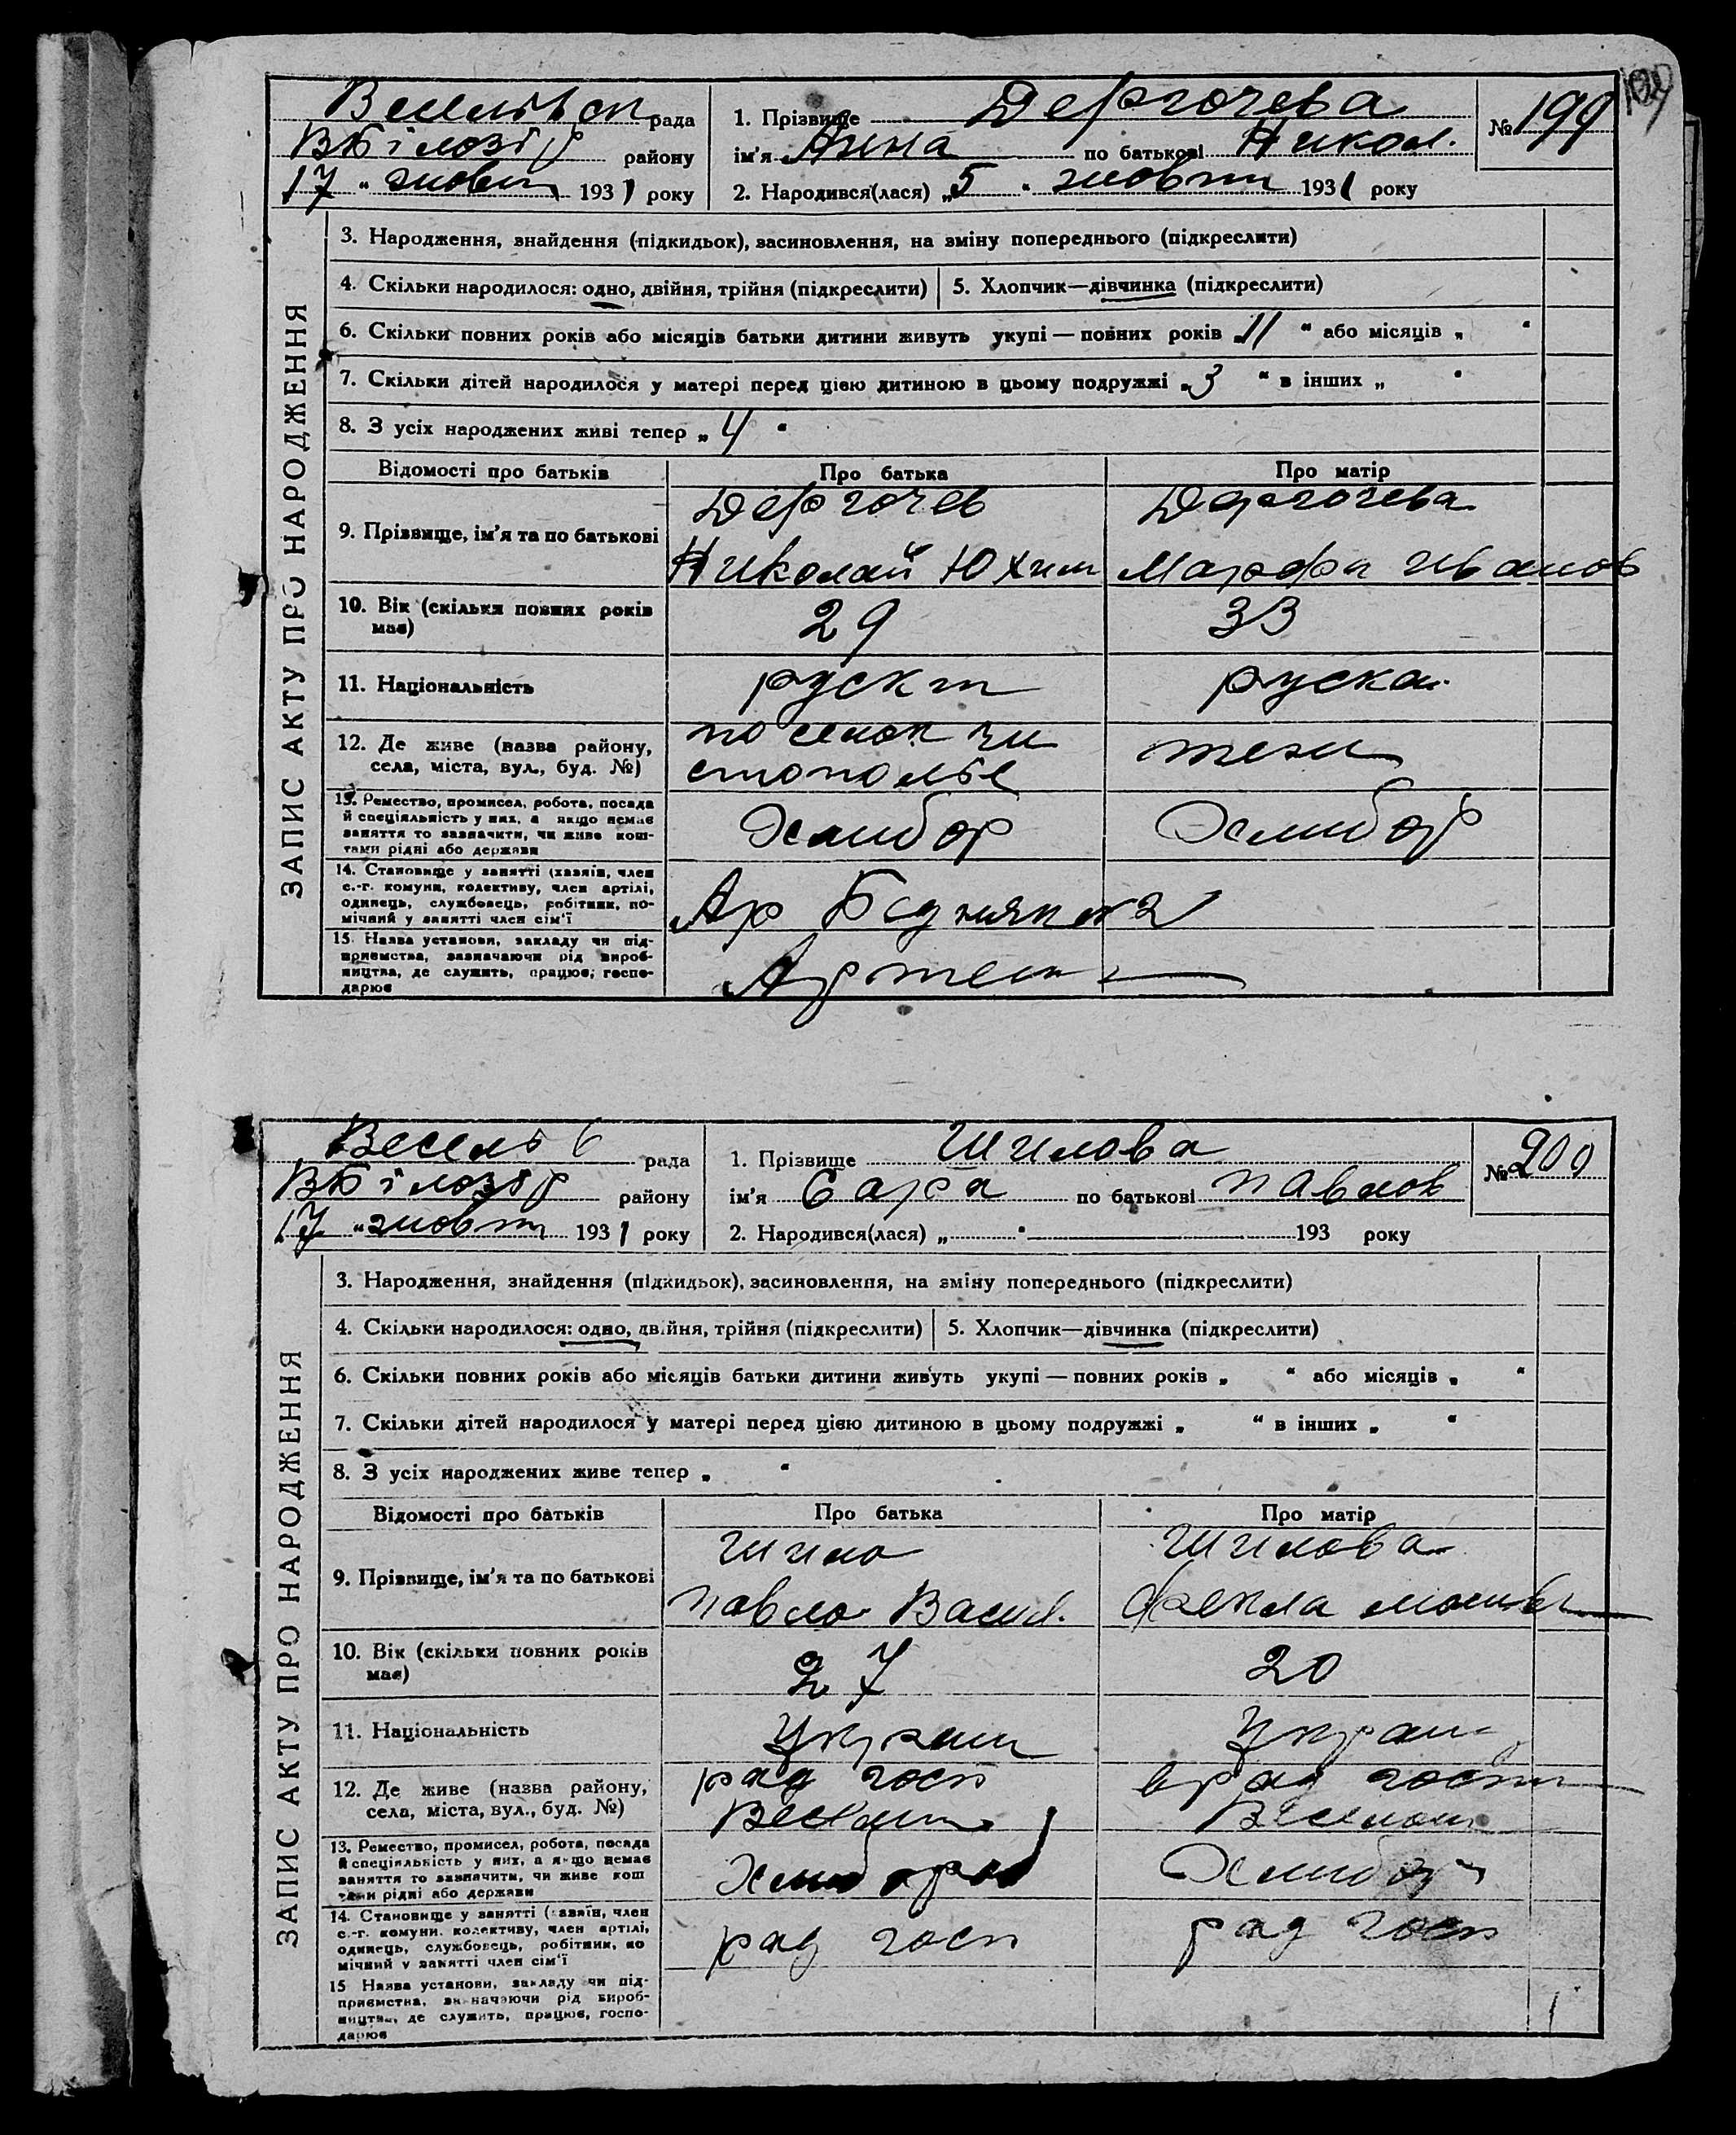 ЗАПИС АКТУ ПРО НАРОДЖЕННЯ
рада
ВБілозір району
17 " жовт 1931 року
1. Прізвище Дергочева
ім'я Анна по батькові Никол.
2. Народився(лася) „5 " жовтн 1931 року
№ 199
3. Народження, знайдення (підкидьок), засиновлення, на зміну попереднього (підкреслити)
4. Скільки народилося: одно, двійня, трійня (підкреслити)
5. Хлопчик—дівчинка (підкреслити)
6. Скільки повних років або місяців батьки дитини живуть укупі — повних років „11 " або місяців „ "
7. Скільки дітей народилося у матері перед цією дитиною в цьому подружжі „3 " в інших „ "
8. З усіх народжених живі тепер „4 "
Відомості про батьків
Про батька
Про матір
9. Прізвище, ім'я та по батькові
Дергочев
Николай Юхим
Дергочева
Марфа Иванов
10. Вік (скільки повних років
має)
29
33
11. Національність
рускт
руска
12. Де живе (назва району,
села, міста, вул., буд. №)
поселок чи
стополье
13. Ремество, промисел, робота, посада
й спеціяльність у них, а якщо немає
заняття то зазначити, чи живе кош-
тами рідні або держави
Хлибор
Хлибор
14. Становище у занятті (хазяїн, член
с.-г. комуни, колективу, член артілі,
одинець, службовець, робітник, по-
мічний у занятті член сім'ї
Ар
15. Назва установи, закладу чи під-
приємства, зазначаючи рід вироб-
ництва, де служить, працює, госпо-
дарює
Артель
ЗАПИС АКТУ ПРО НАРОДЖЕННЯ
Веселів рада
ВБілозір району
17 " жовтн 1931 року
1. Прізвище Шилова
ім'я Сара по батькові Павлов
2. Народився(лася) „ " 193 року
№ 200
3. Народження, знайдення (підкидьок), засиновлення, на зміну попереднього (підкреслити)
4. Скільки народилося: одно, двійня, трійня (підкреслити)
5. Хлопчик—дівчинка (підкреслити)
6. Скільки повних років або місяців батьки дитини живуть укупі — повних років „ " або місяців „ "
7. Скільки дітей народилося у матері перед цією дитиною в цьому подружжі „ " в інших „ "
8. З усіх народжених живе тепер „ "
Відомості про батьків
Про батька
Про матір
9. Прізвище, ім'я та по батькові
Шило
Павло Васил.
Шилова
Фекла
10. Вік (скільки повних років
має)
27
20
11. Національність
Украин
Украи
12. Де живе (назва району,
села, міста, вул., буд. №)
рад госп
рад госп
13. Ремество, промисел, робота, посада
й спеціяльність у них, а якщо немає
заняття то зазначити, чи живе кош
тами рідні або держави
Хлибор
14. Становище у занятті (хазяїн, член
с.-г. комуни, колективу, член артілі,
одинець, службовець, робітник, по
мічний у занятті член сім'ї
рад госп
рад госп
15 Назва установи, закладу чи під-
приємства, зазначаючи рід вироб-
ництва, де служить, працює, госпо-
дарює